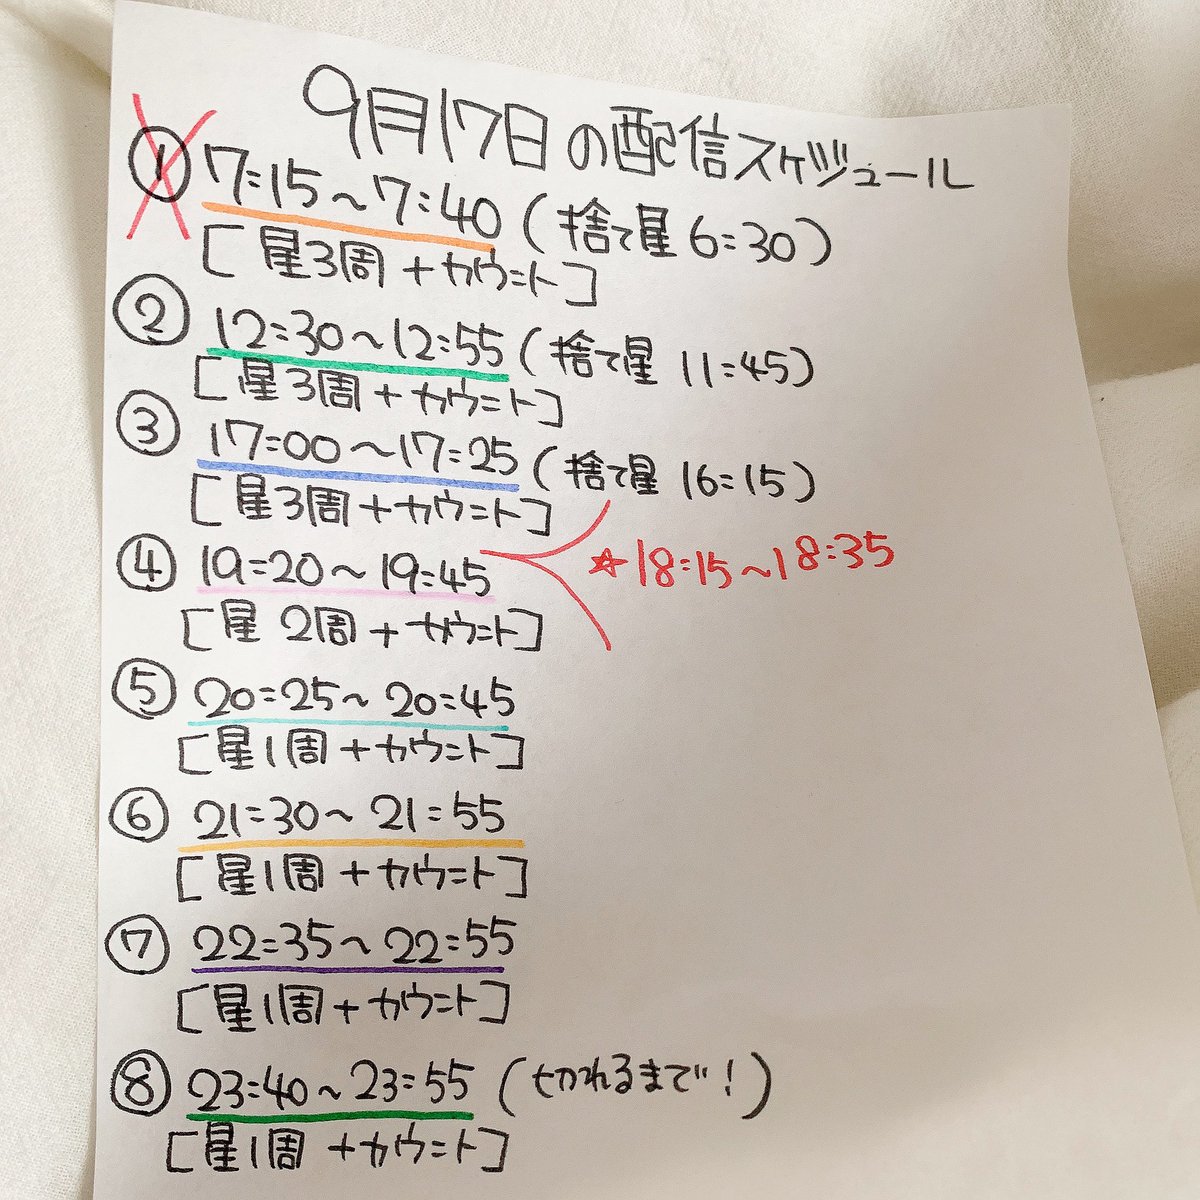 9月17日の配信スケジュール
① 7:15～7:40 (捨て星 6:30)
[星3周+カウント]
② 12:30～12:55 (捨て星 11:45)
[星3周+カウント]
③ 17:00～17:25 (捨て星 16:15)
[星3周+カウント]
☆18:15～18:35
④ 19:20～19:45
[星2周+カウント]
⑤ 20:25～20:45
[星1周+カウント]
⑥ 21:30～21:55
[星1周+カウント]
⑦ 22:35～22:55
[星1周+カウント]
⑧ 23:40～23:55 (切れるまで!)
[星1周+カウント]